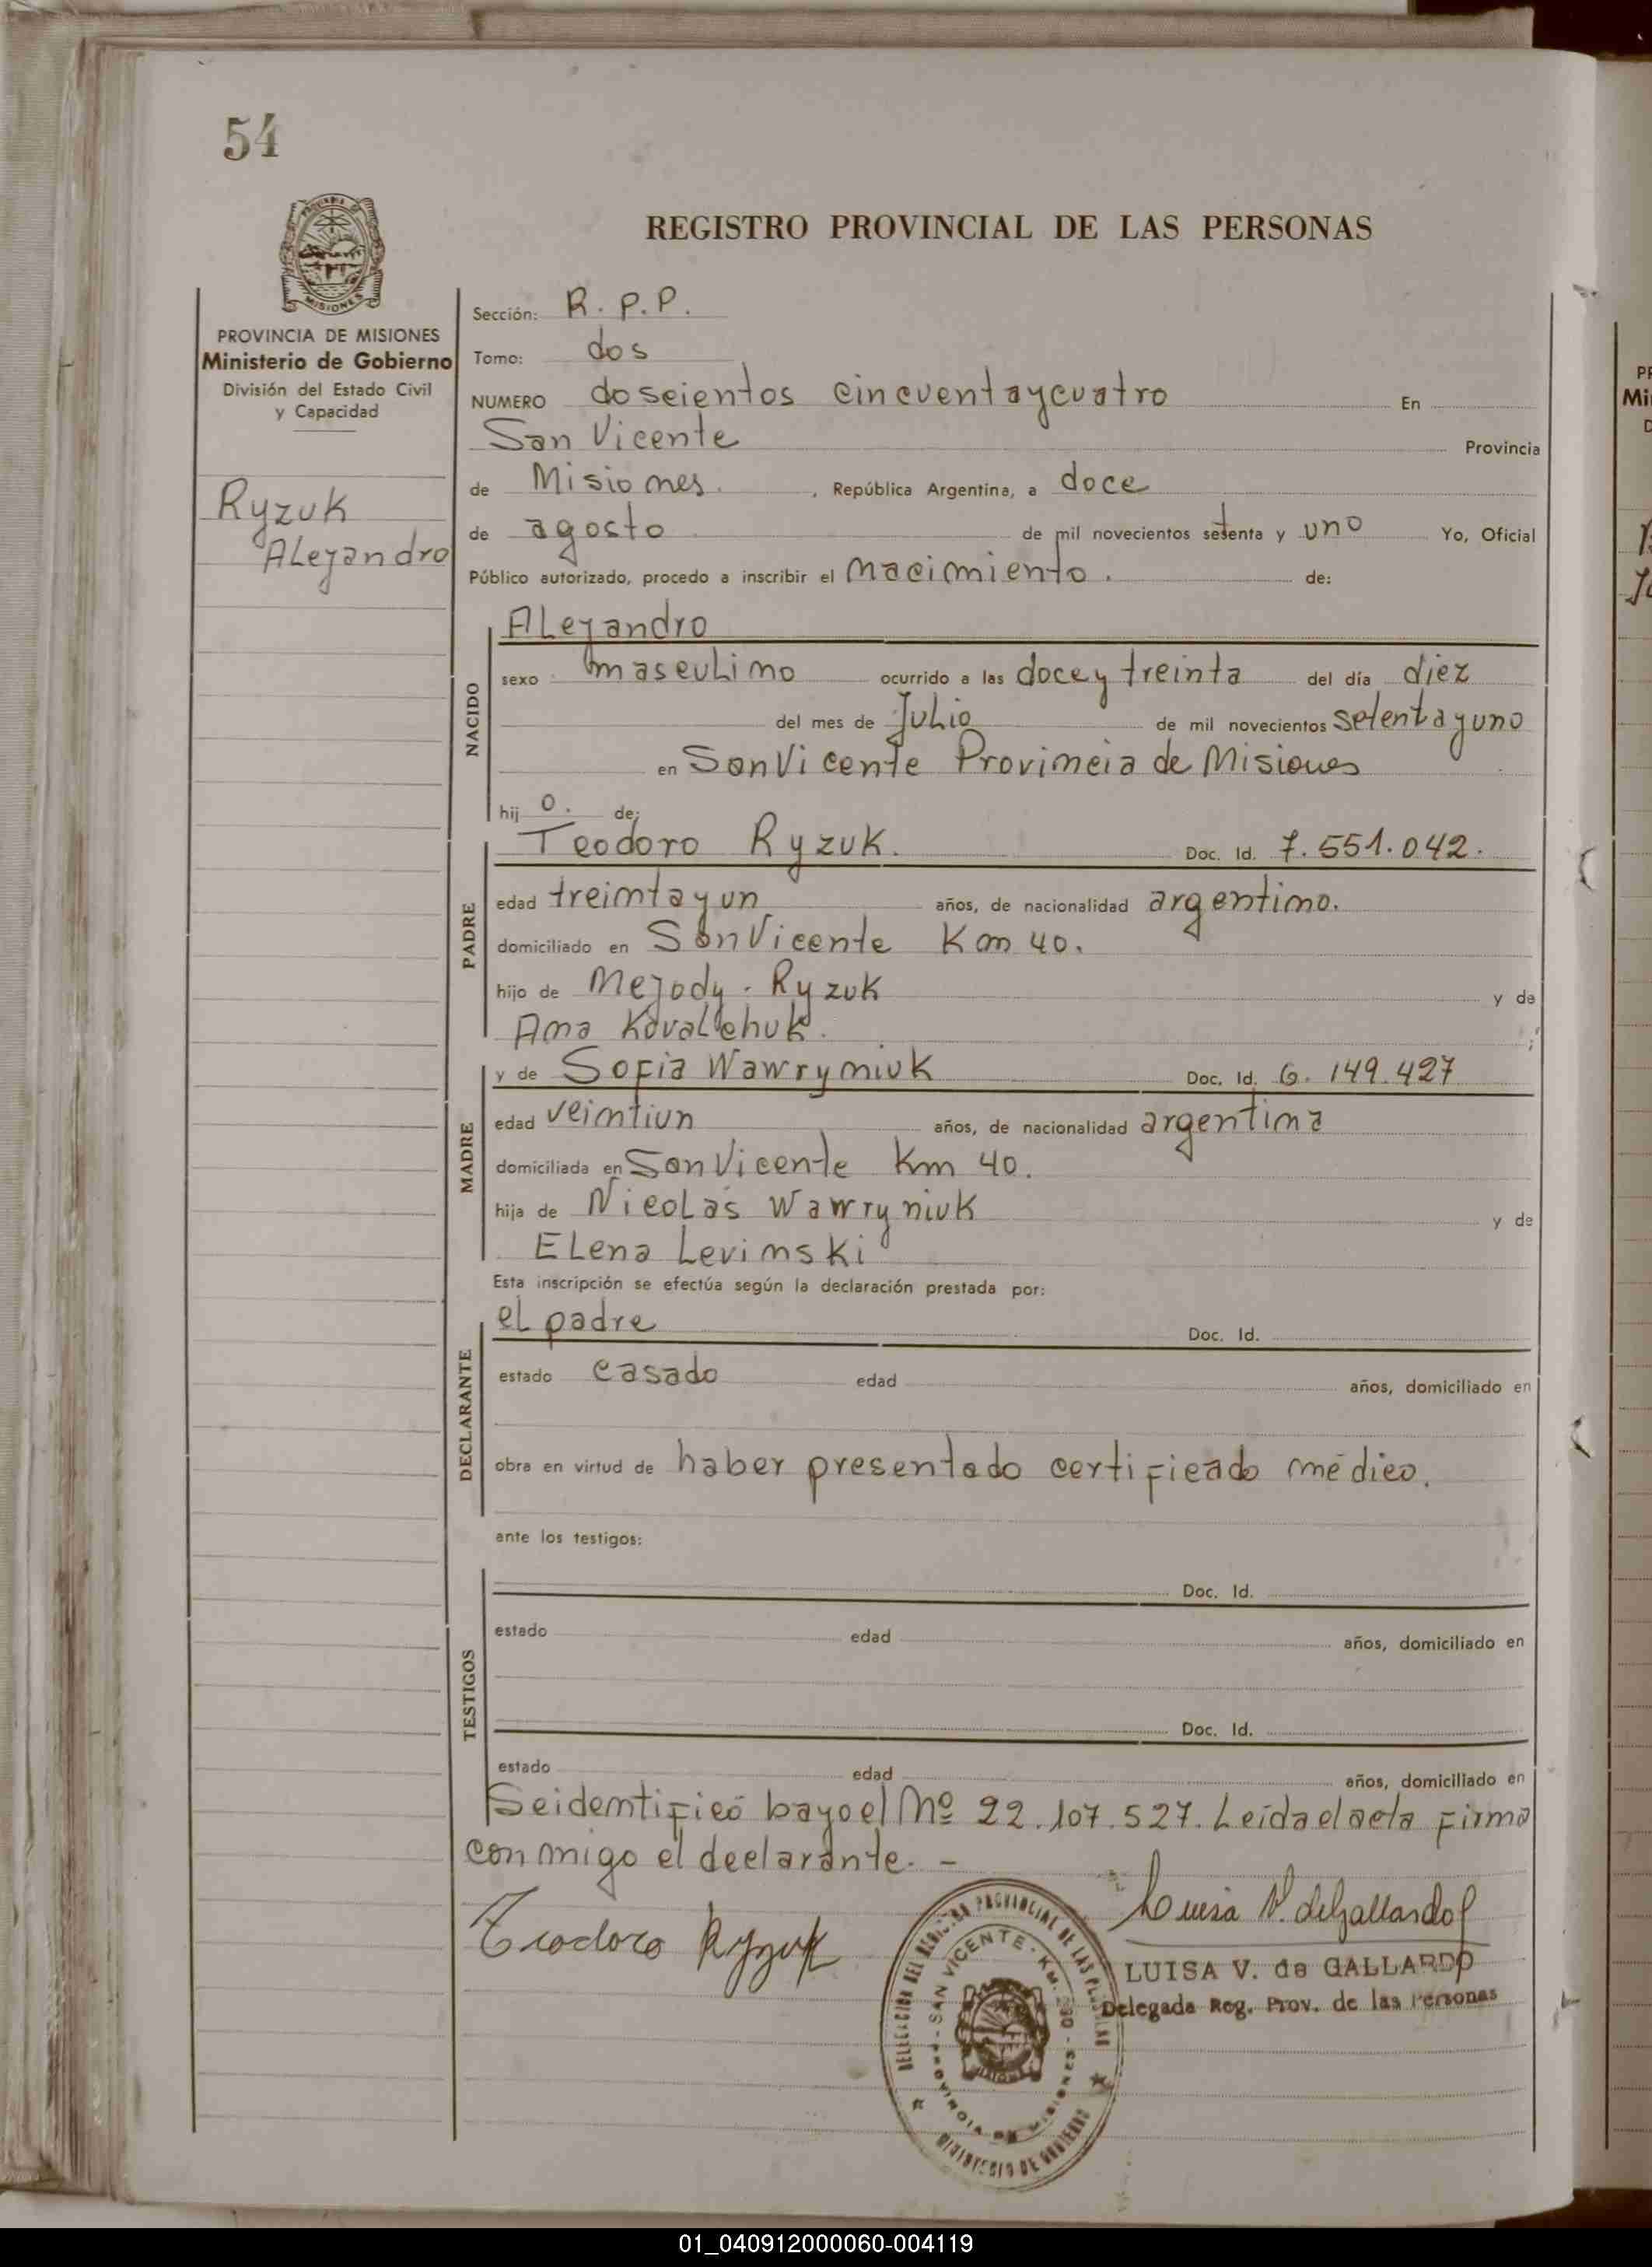 54
REGISTRO PROVINCIAL DE LAS PERSONAS
MISIONES
PROVINCIA DE MISIONES
Ministerio de Gobierno
División del Estado Civil
y Capacidad
Ryzuk
Alejandro
Sección: R. P. P.
Tomo: dos
NUMERO doscientos cincuentaycuatro En
San Vicente Provincia
de Misiones. , República Argentina, a doce
de agosto de mil novecientos setenta y uno Yo, Oficial
Público autorizado, procedo a inscribir el nacimiento. de:
NACIDO
Alejandro
sexo masculino ocurrido a las doce y treinta del día diez
del mes de Julio de mil novecientos setentayuno
en San Vicente Provincia de Misiones
hij o. de:
PADRE
Teodoro Ryzuk. Doc. Id. 7.551.042.
edad treintayun años, de nacionalidad argentino.
domiciliado en San Vicente Km 40.
hijo de Mejody. Ryzuk y de
Ana Kovalchuk.
MADRE
y de Sofia Wawryniuk Doc. Id. 6. 149.427
edad veintiun años, de nacionalidad argentina
domiciliada en San Vicente Km 40.
hija de Nicolás Wawryniuk y de
Elena Levinski
Esta inscripción se efectúa según la declaración prestada por:
DECLARANTE
el padre Doc. Id.
estado casado edad años, domiciliado en
obra en virtud de haber presentado certificado médico.
ante los testigos:
TESTIGOS
Doc. Id.
estado edad años, domiciliado en
Doc. Id.
estado edad años, domiciliado en
Seidentificó bayo el Nº 22.107.527. Leída el acta firma
con migo el declarante. -
Teodoro Ryzuk
Luisa V. de Gallardo
LUISA V. de GALLARDO
Delegada Reg. Prov. de las Personas
DELEGACION DEL REGISTRO PROVINCIAL DE LAS PERSONAS
SAN VICENTE - KM.
PROVINCIA DE MISIONES
MINISTERIO DE GOBIERNO
01_040912000060-004119